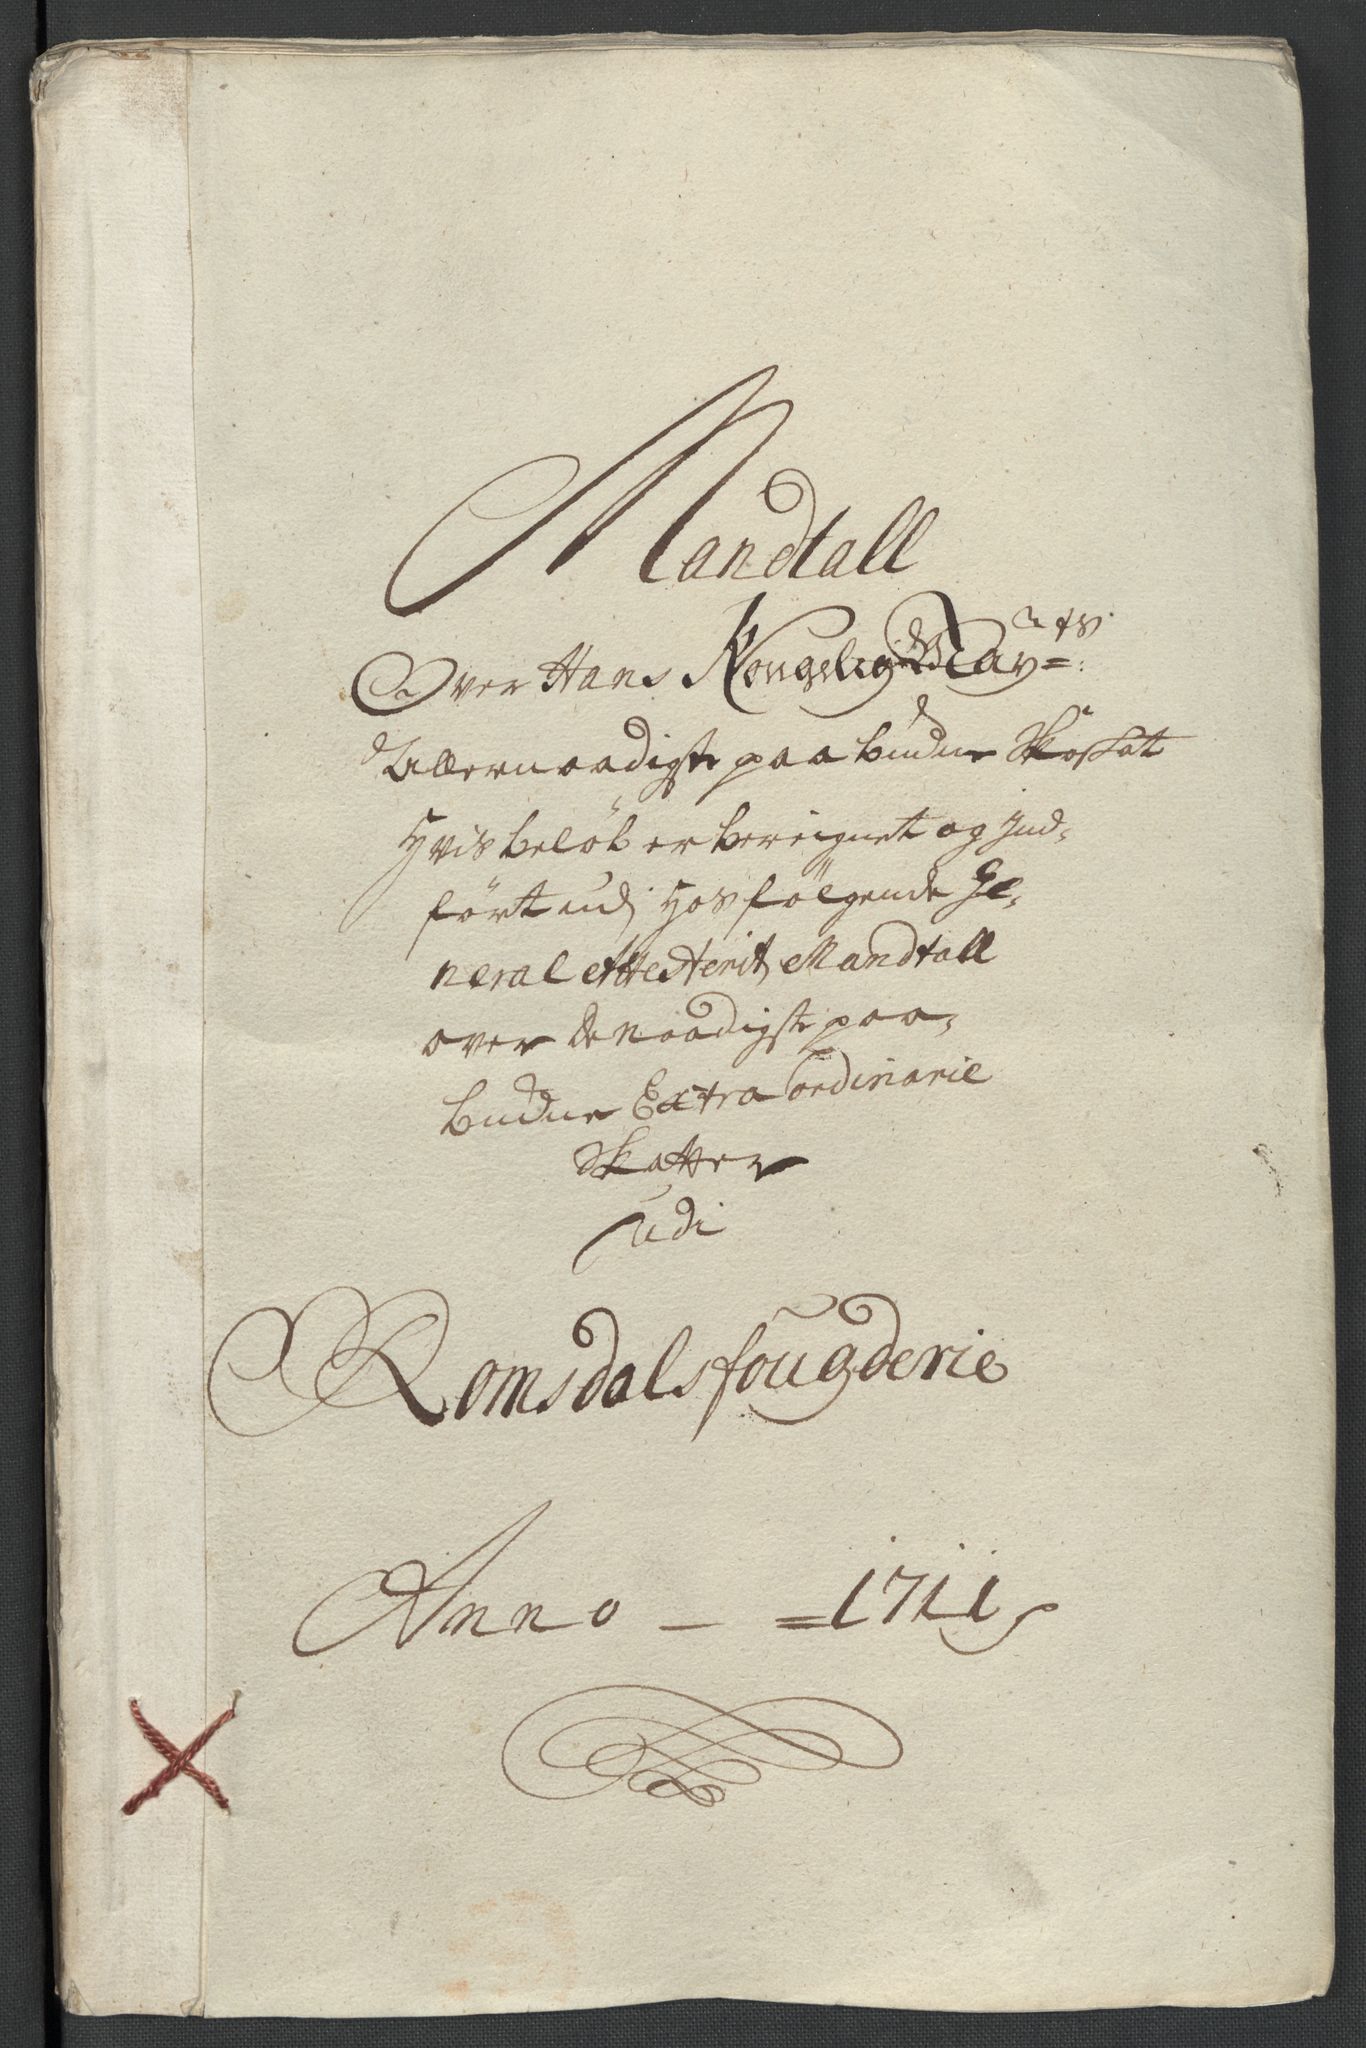 Mandtall
Over Hans Kongelig May=ts:
Allernaadigste paabudne Skoskat
Hvis beløb er bereignet og ind-
ført udj Hosfølgende Ge-
neral Attesterit Mandtall
over de naadigste paa-
budne Extra ordinarie
Skatter
udi
Romsdals fougderie
Anno - =1711